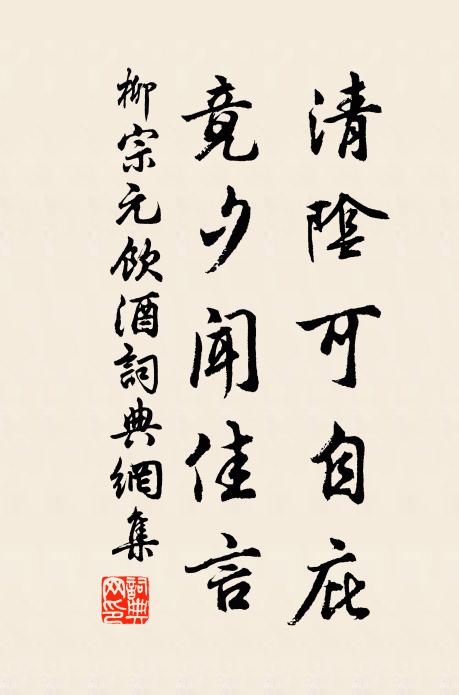 清陰可自庇
竟夕聞佳言
柳宗元飲酒詞典網集
詞典網印